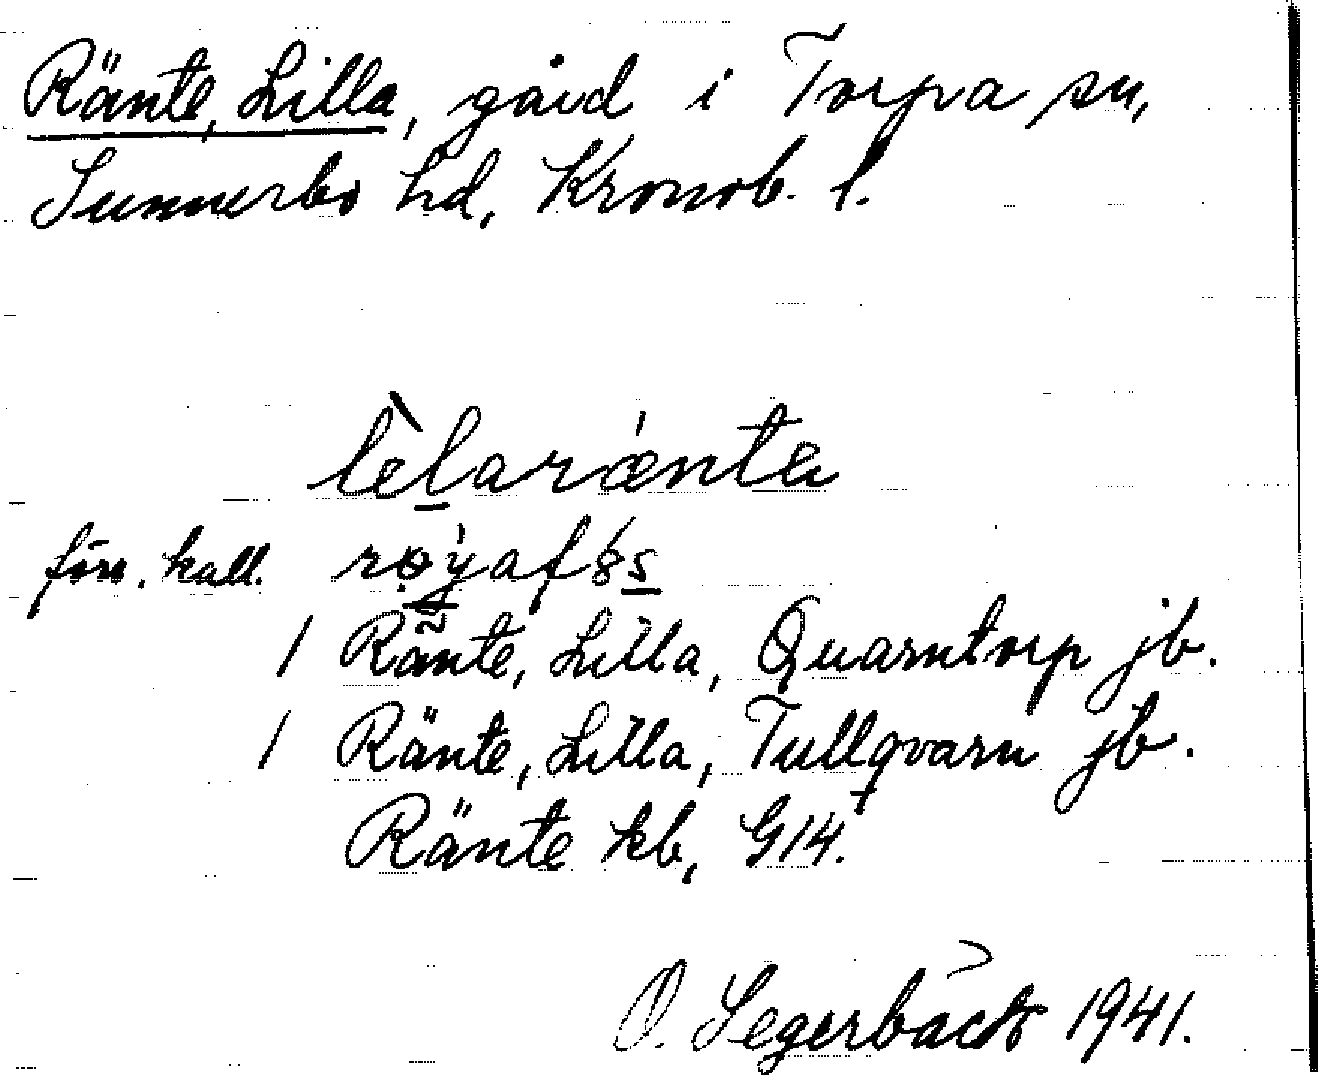 Ränte, Lilla, gård i Torpa sn,
Sunnerbo hd, Kronob. l.
lèlarǽnta
förr. kall. røyafȣs
1 Ränte, Lilla, Quarntorp jb.
1 Ränte, Lilla, Tullqvarn jb.
Ränte kb, G14.
O. Segerbäck 1941.